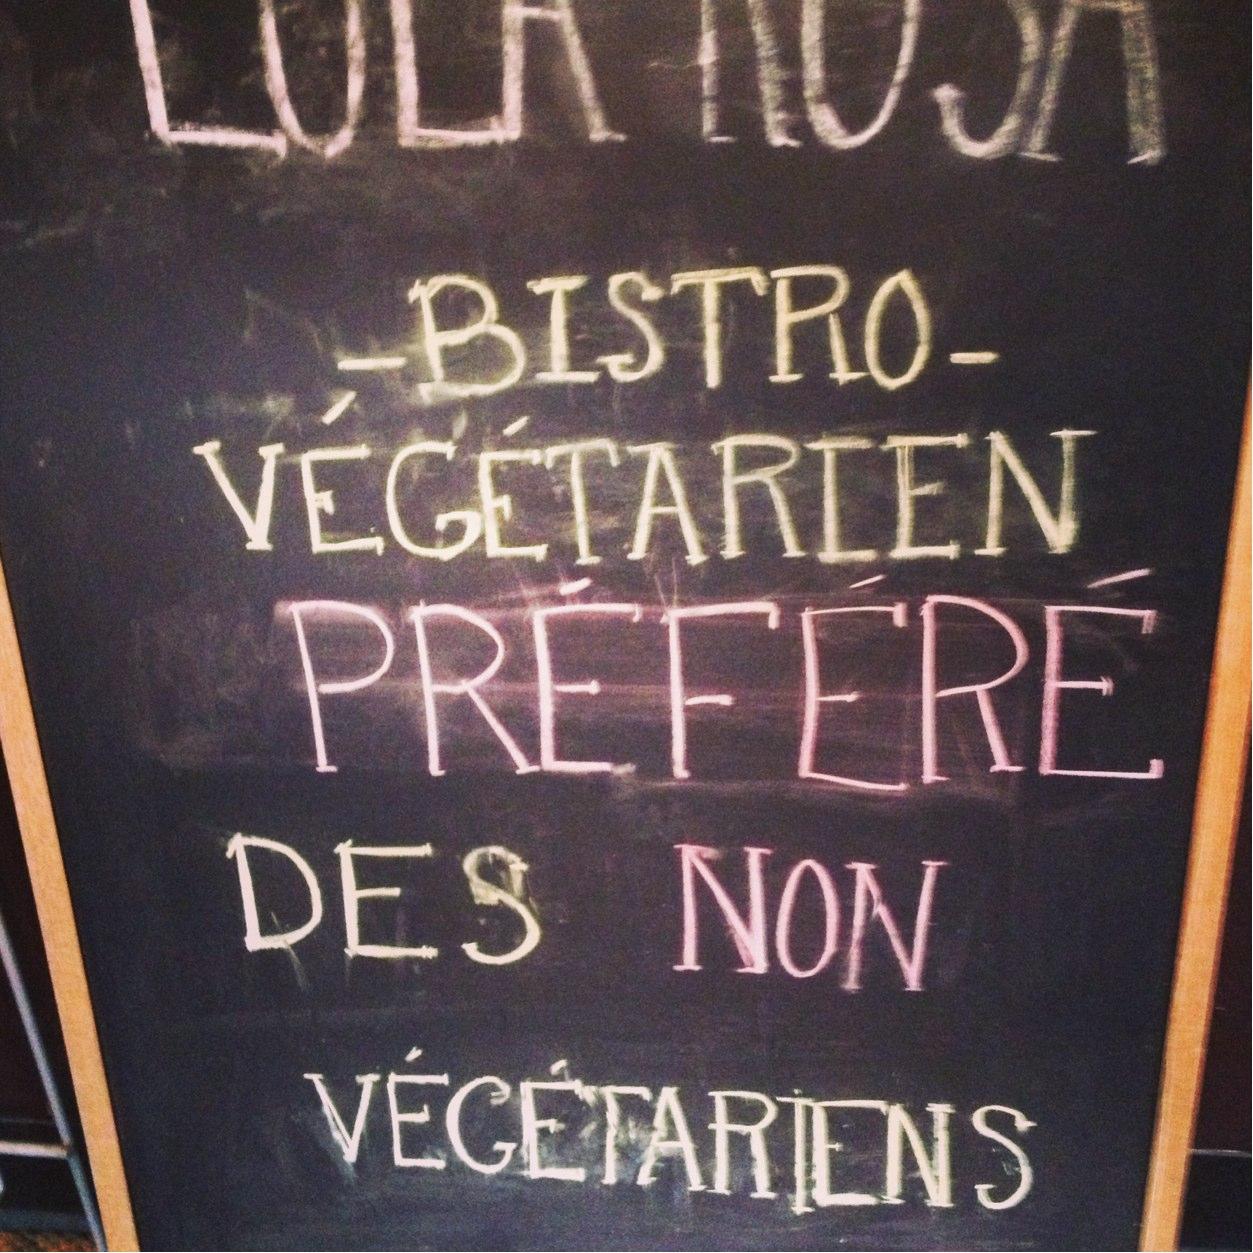 LOLA ROSA
-BISTRO-
VÉGÉTARIEN
PRÉFÉRÉ
DES NON
VÉGÉTARIENS